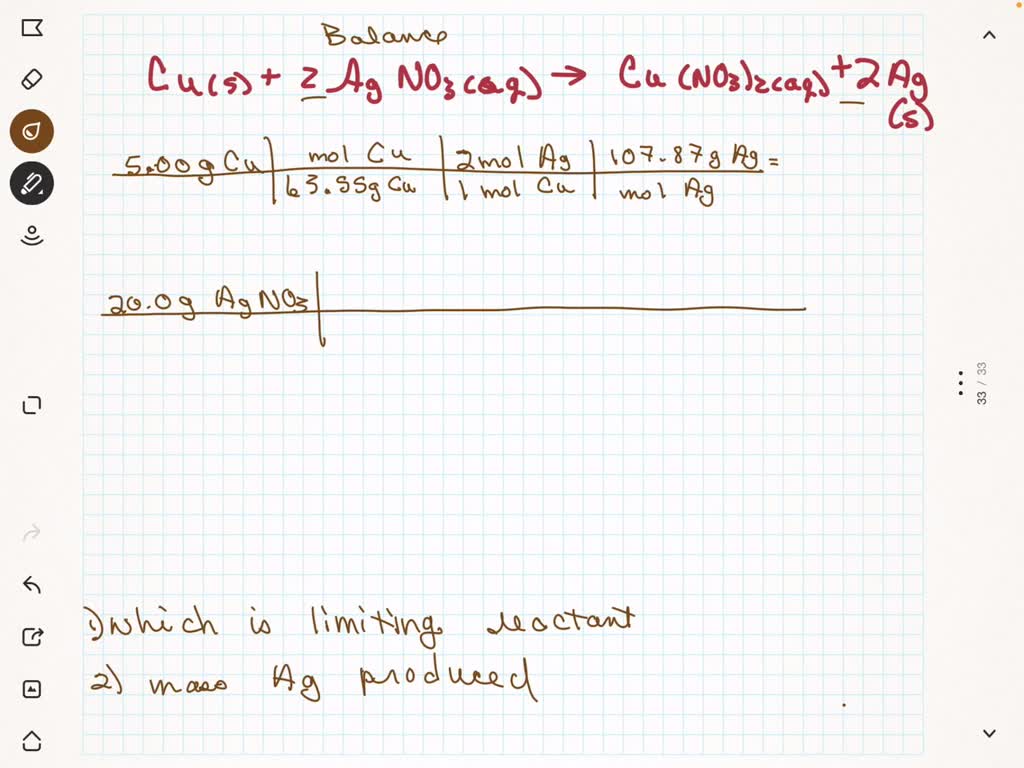 Balance
Cu(s) + 2 AgNO3(aq) → Cu(NO3)2(aq) + 2Ag
(s)
5.00g Cu | mol Cu | 2mol Ag | 107.87g Ag =
63.55g Cu | 1 mol Cu | mol Ag
20.0g AgNO3
33 / 33
1) which is limiting reactant
2) mass Ag produced